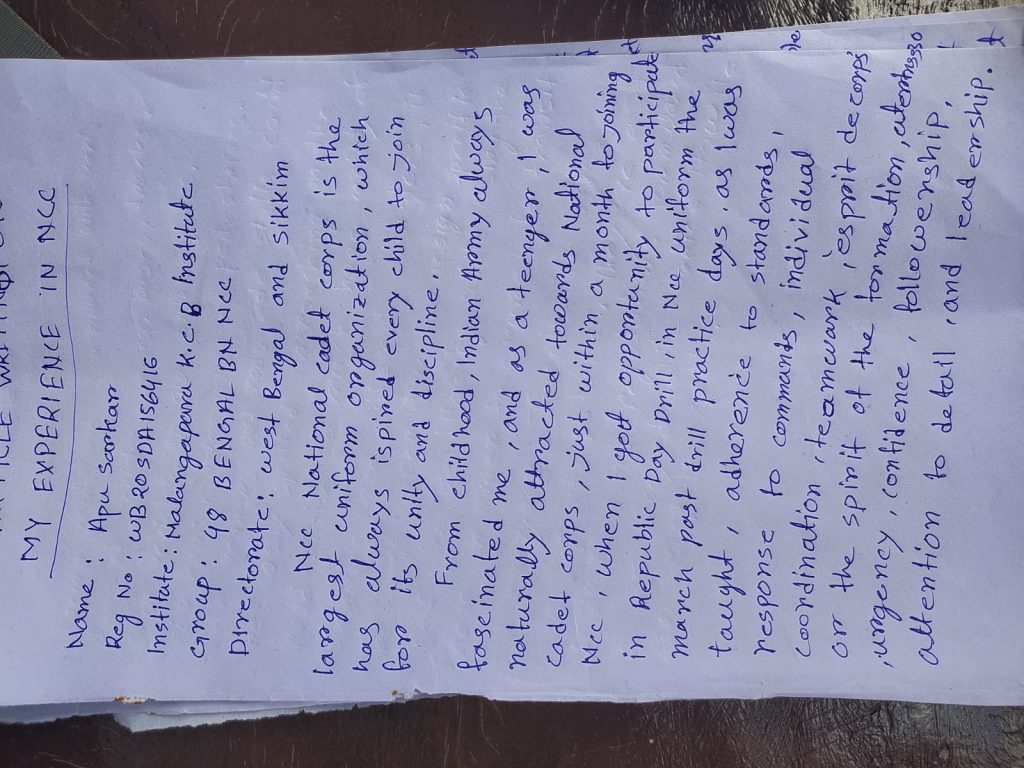 MY EXPERIENCE IN NCC
Name : Apu Sarkar
Reg No : WB20SDA156416
Institute : Malangapara K.C.B Institute
Group : 48 BENGAL BN NCC
Directorate : West Bengal and Sikkim
Ncc National cadet corps is the
largest uniform organization, which
has always ispired every child to join
for its unity and discipline.
From childhood, Indian Army always
fascinated me, and as a teenger, I was
naturally attracted towards National
cadet corps, just within, a month to joining
Ncc, when I gott opportunity to participate
in Republic Day Drill, in Ncc uniform the
march past drill practice days. as I was
taught, adherence to standards,
response to commands, individual
coordination, teamwark, esprit decorps
or the spirit of the formation,
,urgency, confidence, followership,
attention to detall, and leadership.